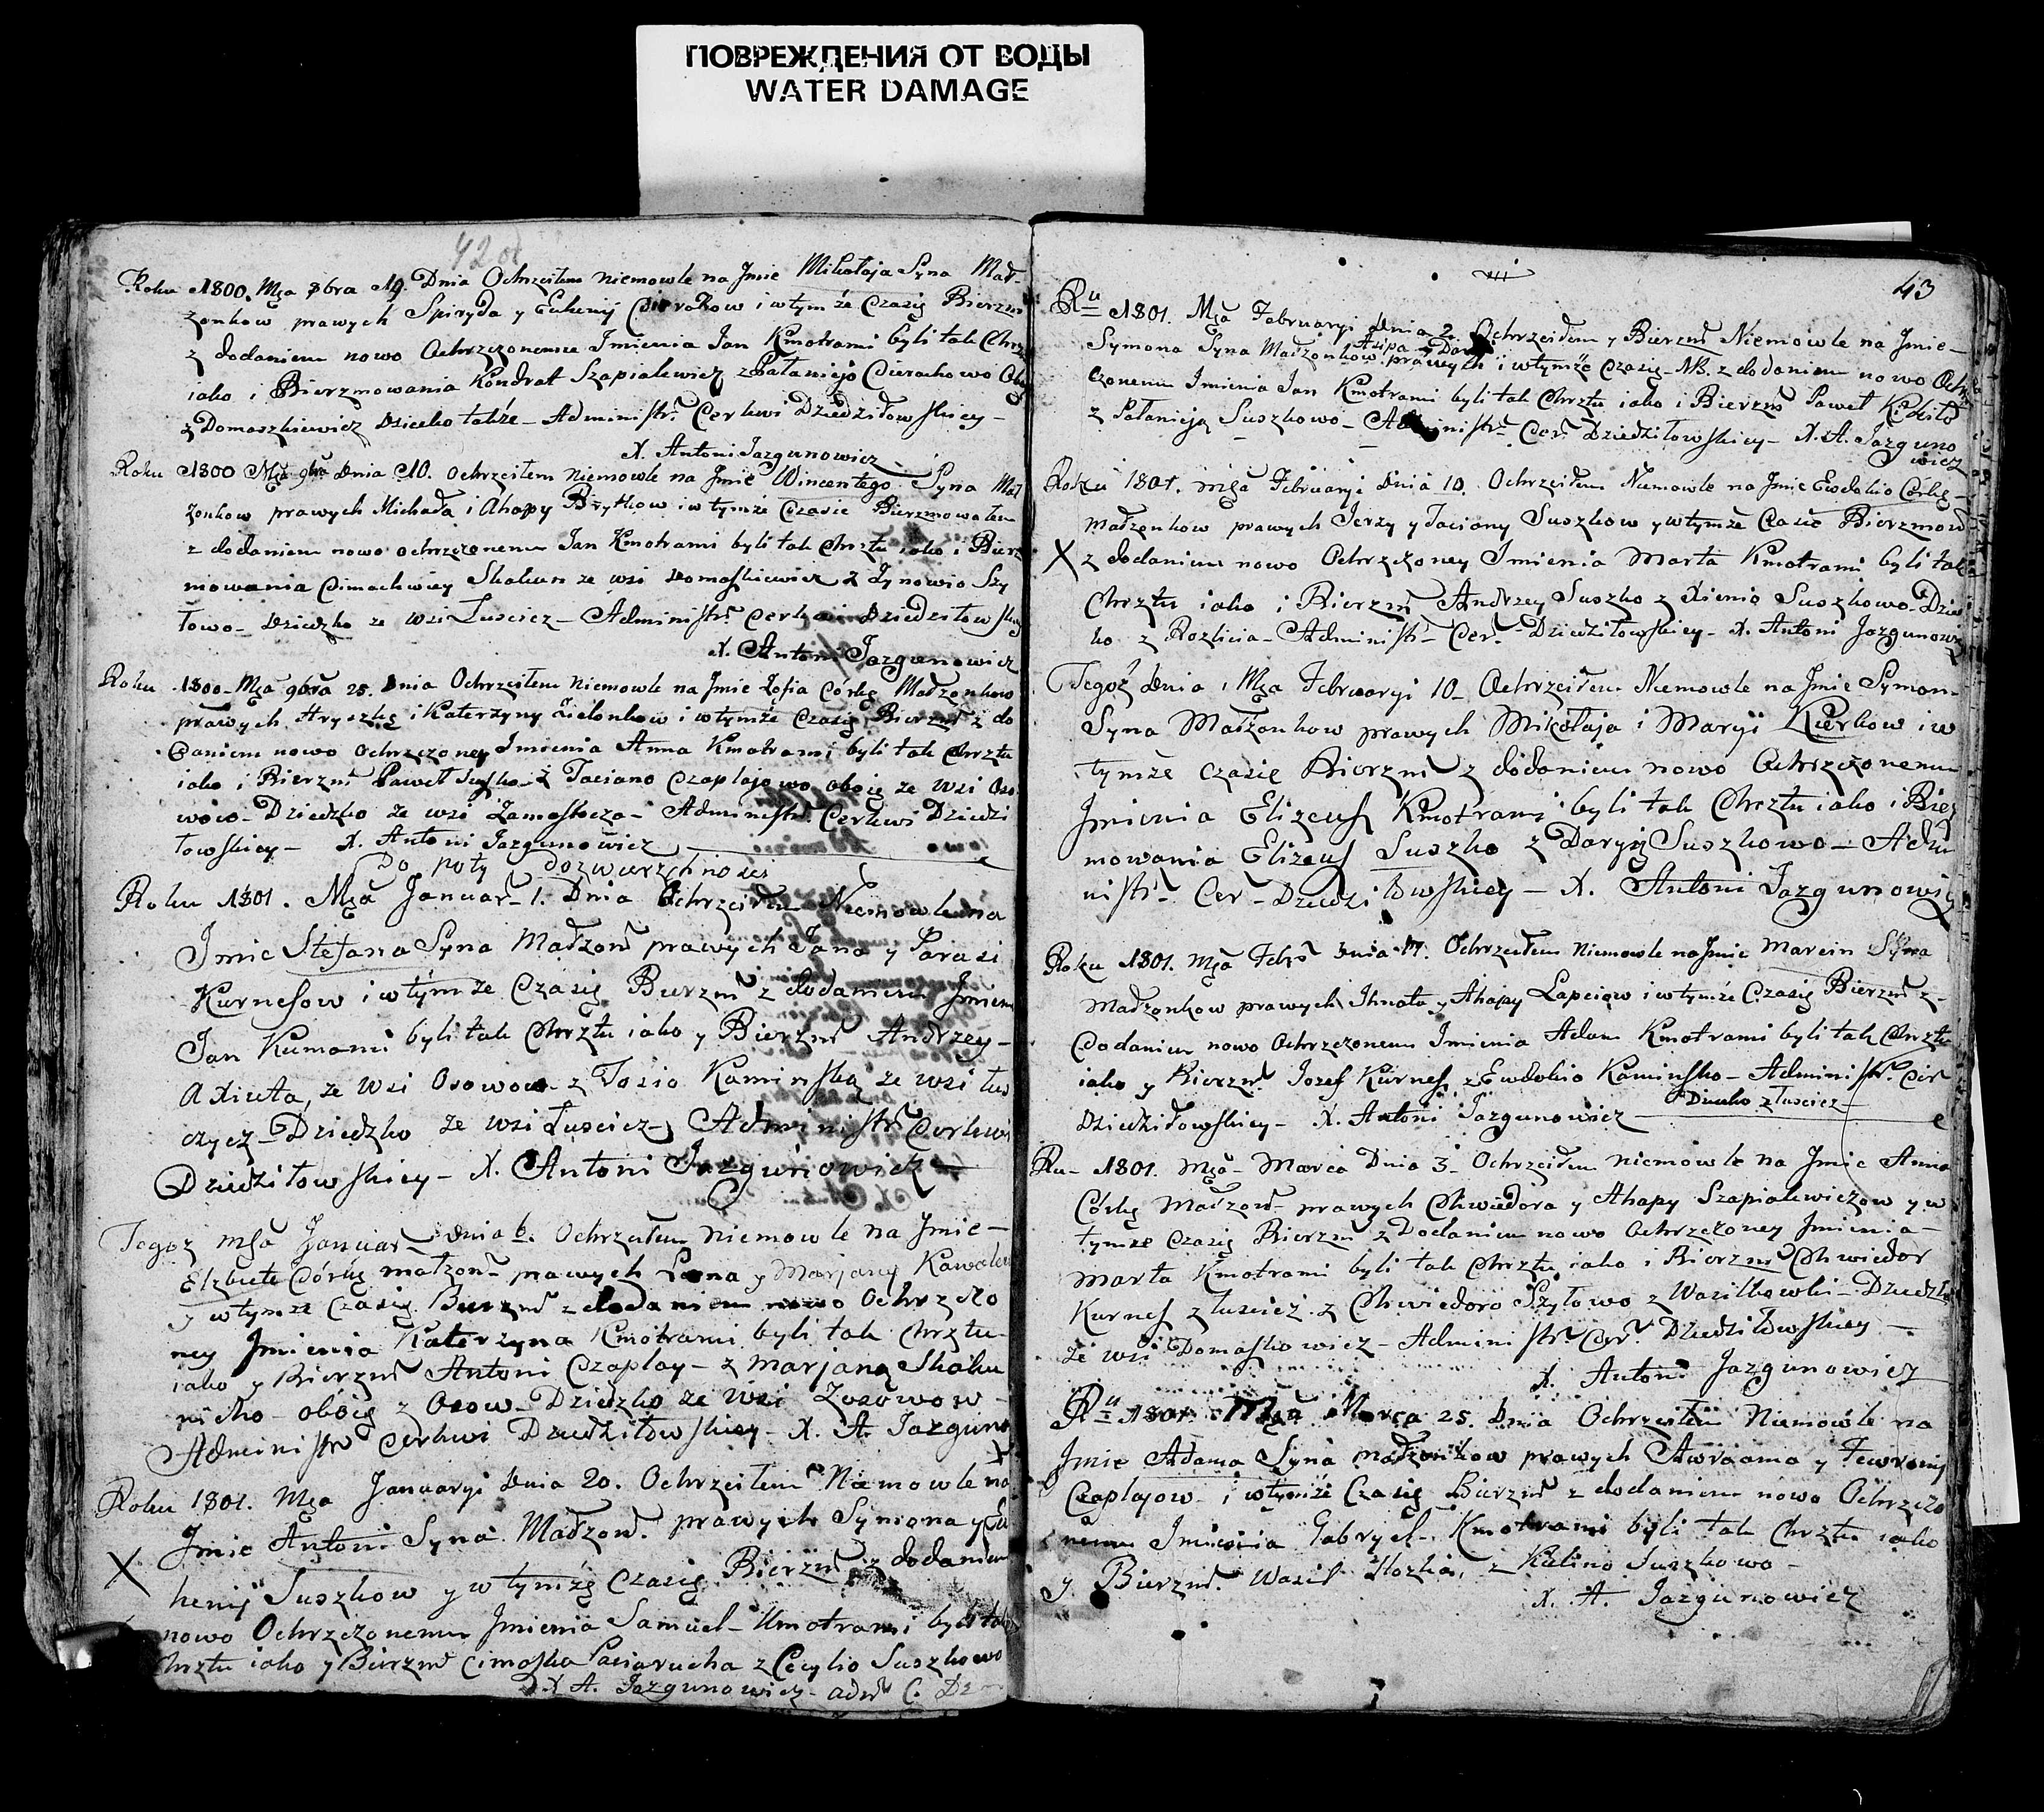 ПОВРЕЖДЕНИЯ ОТ ВОДЫ
WATER DAMAGE
Roku 1800. Mca 9bra 19. Dnia Ochrzciłem niemowle na Jmie Mikołaja Syna Mał-
żonkow prawych Spiryda y Euhenij i w tym że Czasie Bierzm
z dodaniem nowo Ochrzczonemu Imienia Jan Kmotrami byli tak Chrz
iako i Bierzmowania Kondrat Szapialewicz z Pałaniejo
z Domaszkiewicz Dziecko także - Administr. Cerkwi Dziedziłowskiey -
X. Antoni Jazgunowicz
Roku 1800 Mca 9bra Dnia 10. ochrzciłem niemowle na Jmie Wincentego Syna Mał
żonkow prawych Michała i Ahapy Brytkow i w tymże Czasie Bierzmowałem
z dodaniem nowo ochrzczonemu Jan Kmotrami byli tak Chrztu iako i Bierz
mowania Skakun ze wsi Domaszkiewicz z Zynowio Szy
towo - Dziedzko ze wsi Tuscicz - Administr. Cerkwi Dziedziłowskiey
X. Antoni Jazgunowicz
Roku 1800 - Mca 9bra 25. Dnia Ochrzciłem Niemowle na Jmie Zofia Córkę Małżonkow
prawych Hryszkę i Katerzyny Zielonkow i w tymże Czasie Bierzm z do
daniem nowo ochrzczoney Imienia Anna Kmotrami byli tak Chrztu
iako i Bierzm Paweł Suszko z Taciano Czaplajowo oboie ze wsi Oso
wowo - Dziedzko ze wsi Zamostocza - Administr. Cerkwi Dziedzi
łowskiey - X. Antoni Jazgunowicz
Do poty
Roku 1801. Mca Januar. 1. Dnia Ochrzciłem Niemowle na
Imie Stefana Syna Małżon prawych Jana y Parasi
Kurnesow i w tymże Czasie Bierzm z dodaniem Jmien
Jan Kumami byli tak Chrztu iako y Bierzm Andrzey -
Axiuta, ze wsi Osowow z Tosio Kaminską ze wsi Tus
czycz - Dziedzko ze wsi Tuscicz - Administr Cerkwi
Dziedziłowskiey - X. Antoni Jazgunowicz
Tegoz mca Januar - dnia 6. Ochrzciłem niemowle na Jmie -
Elzbiete Córkę małżon - prawych y Marjany Kawalew
y w tymże Czasie Bierzm z dodaniem nowo Ochrzczo
ney Jmienia Katerzyna Kmotrami byli tak Chrztu -
iako y Bierzm Antoni Czaplay - z Marjaną Skaku
nicho - oboie z Osow - Dziedzko ze wsi Zosowow -
Administr Cerkwi Dziedziłowskiey - X. A. Jazguno
Roku 1801. Mca Januaryi Dnia 20. Ochrzciłem Niemowle na
Jmie Antoni Syna Małżon. prawych Symona y Eu
X
henij Suszkow y w tymże Czasie Bierzm z dodaniem
nowo Ochrzczonemu Jmienia Samuel - Kmotrami byli tak
Chrztu iako y Bierzm z Cecylio Suszkowo
X A. Jazgunowicz - adm C. Dz
43
Ru 1801. Mca Februaryi Dnia 2. Ochrzciłem y Bierzm Niemowle na Jmie -
Symona Syna Małżonkow prawych i w tymże Czasie - NB. z dodaniem nowo Ochrz
czonemu Imienia Jan Kmotrami byli tak Chrztu iako i Bierzm Paweł
z Pałanieją Suszkowo - Administr - Cer. Dziedziłowskiey - X. A. Jazguno
wicz
Roku 1801. mca Februaryi Dnia 10. Ochrzciłem Niemowle na Jmie Ewdokio Córkę -
małżonkow prawych Jerzy y Taciany Suszkow y w tymże Czasie Bierzmow
X z dodaniem nowo Ochrzczoney Imienia Marta Kmotrami byli tak
Chrztu iako i Bierzm Andrzey Suszko z Xienio Suszkowo - Dzied
ko z Rozlicia - Administr - Cer. - Dziedziłowskiey - X. Antoni Jazgunowi
Tegoż Dnia, Mca Februaryi 10 - Ochrzciłem Niemowle na Jmie Symon -
Syna Małżonkow prawych Mikołaja i Maryi Kierkow i w
tymże czasie Bierzm z dodaniem nowo Ochrzczonemu
Jmienia Elizeusz Kmotrami byli tak Chrztu iako i Bierz
mowania Elizeusz Suszko z Daryij Suszkowo - Admi
nistr - Cer - Dziedziłowskiey - X. Antoni Jazgunowicz
Roku 1801. mca Febr Dnia 17. Ochrzciłem Niemowle na Jmie Marcin Syna
Małżonkow prawych Ihnata y Ahapy Lapciow i w tymże Czasie Bierzm z -
dodaniem nowo Ochrzczonemu Imienia Adam Kmotrami byli tak Chrztu
iako y Bierzm Jozef Kurnesz z Ewdokio Kaminsko - Administr. Cer
Dziecko z Tuscicz
Dziedziłowskiey - X. Antoni Jazgunowicz
Ru - 1801. Mca - Marca Dnia 3 - Ochrzciłem niemowle na Jmie Anna
Córkę Małżon - prawych Chwiedora y Ahapy Szapialewiczow y w
tymże Czasie Bierzm z Dodaniem nowo Ochrzczoney Jmienia -
Marta Kmotrami byli tak Chrztu iako i Bierzm Chwiedor
Kurnesz z Tuscicz z Chwiedoro Szytowo z Wasilkowki - Dziedzko
ze wsi Domaszkowicz - Administr. Cer. Dziedziłowskiey -
X. Antoni Jazgunowicz
Ru 1801 Mca Marca 25. Dnia Ochrzciłem Niemowle na
Jmie Adama Syna małżonkow prawych Awraama y Fewronij
Czaplajow i w tymże Czasie Bierzm z dodaniem nowo Ochrzczo
nemu Imienia Gabryel - Kmotrami byli tak Chrztu iako
y Bierzm. Wasil z Kalino Suszkowo -
X. A. Jazgunowicz